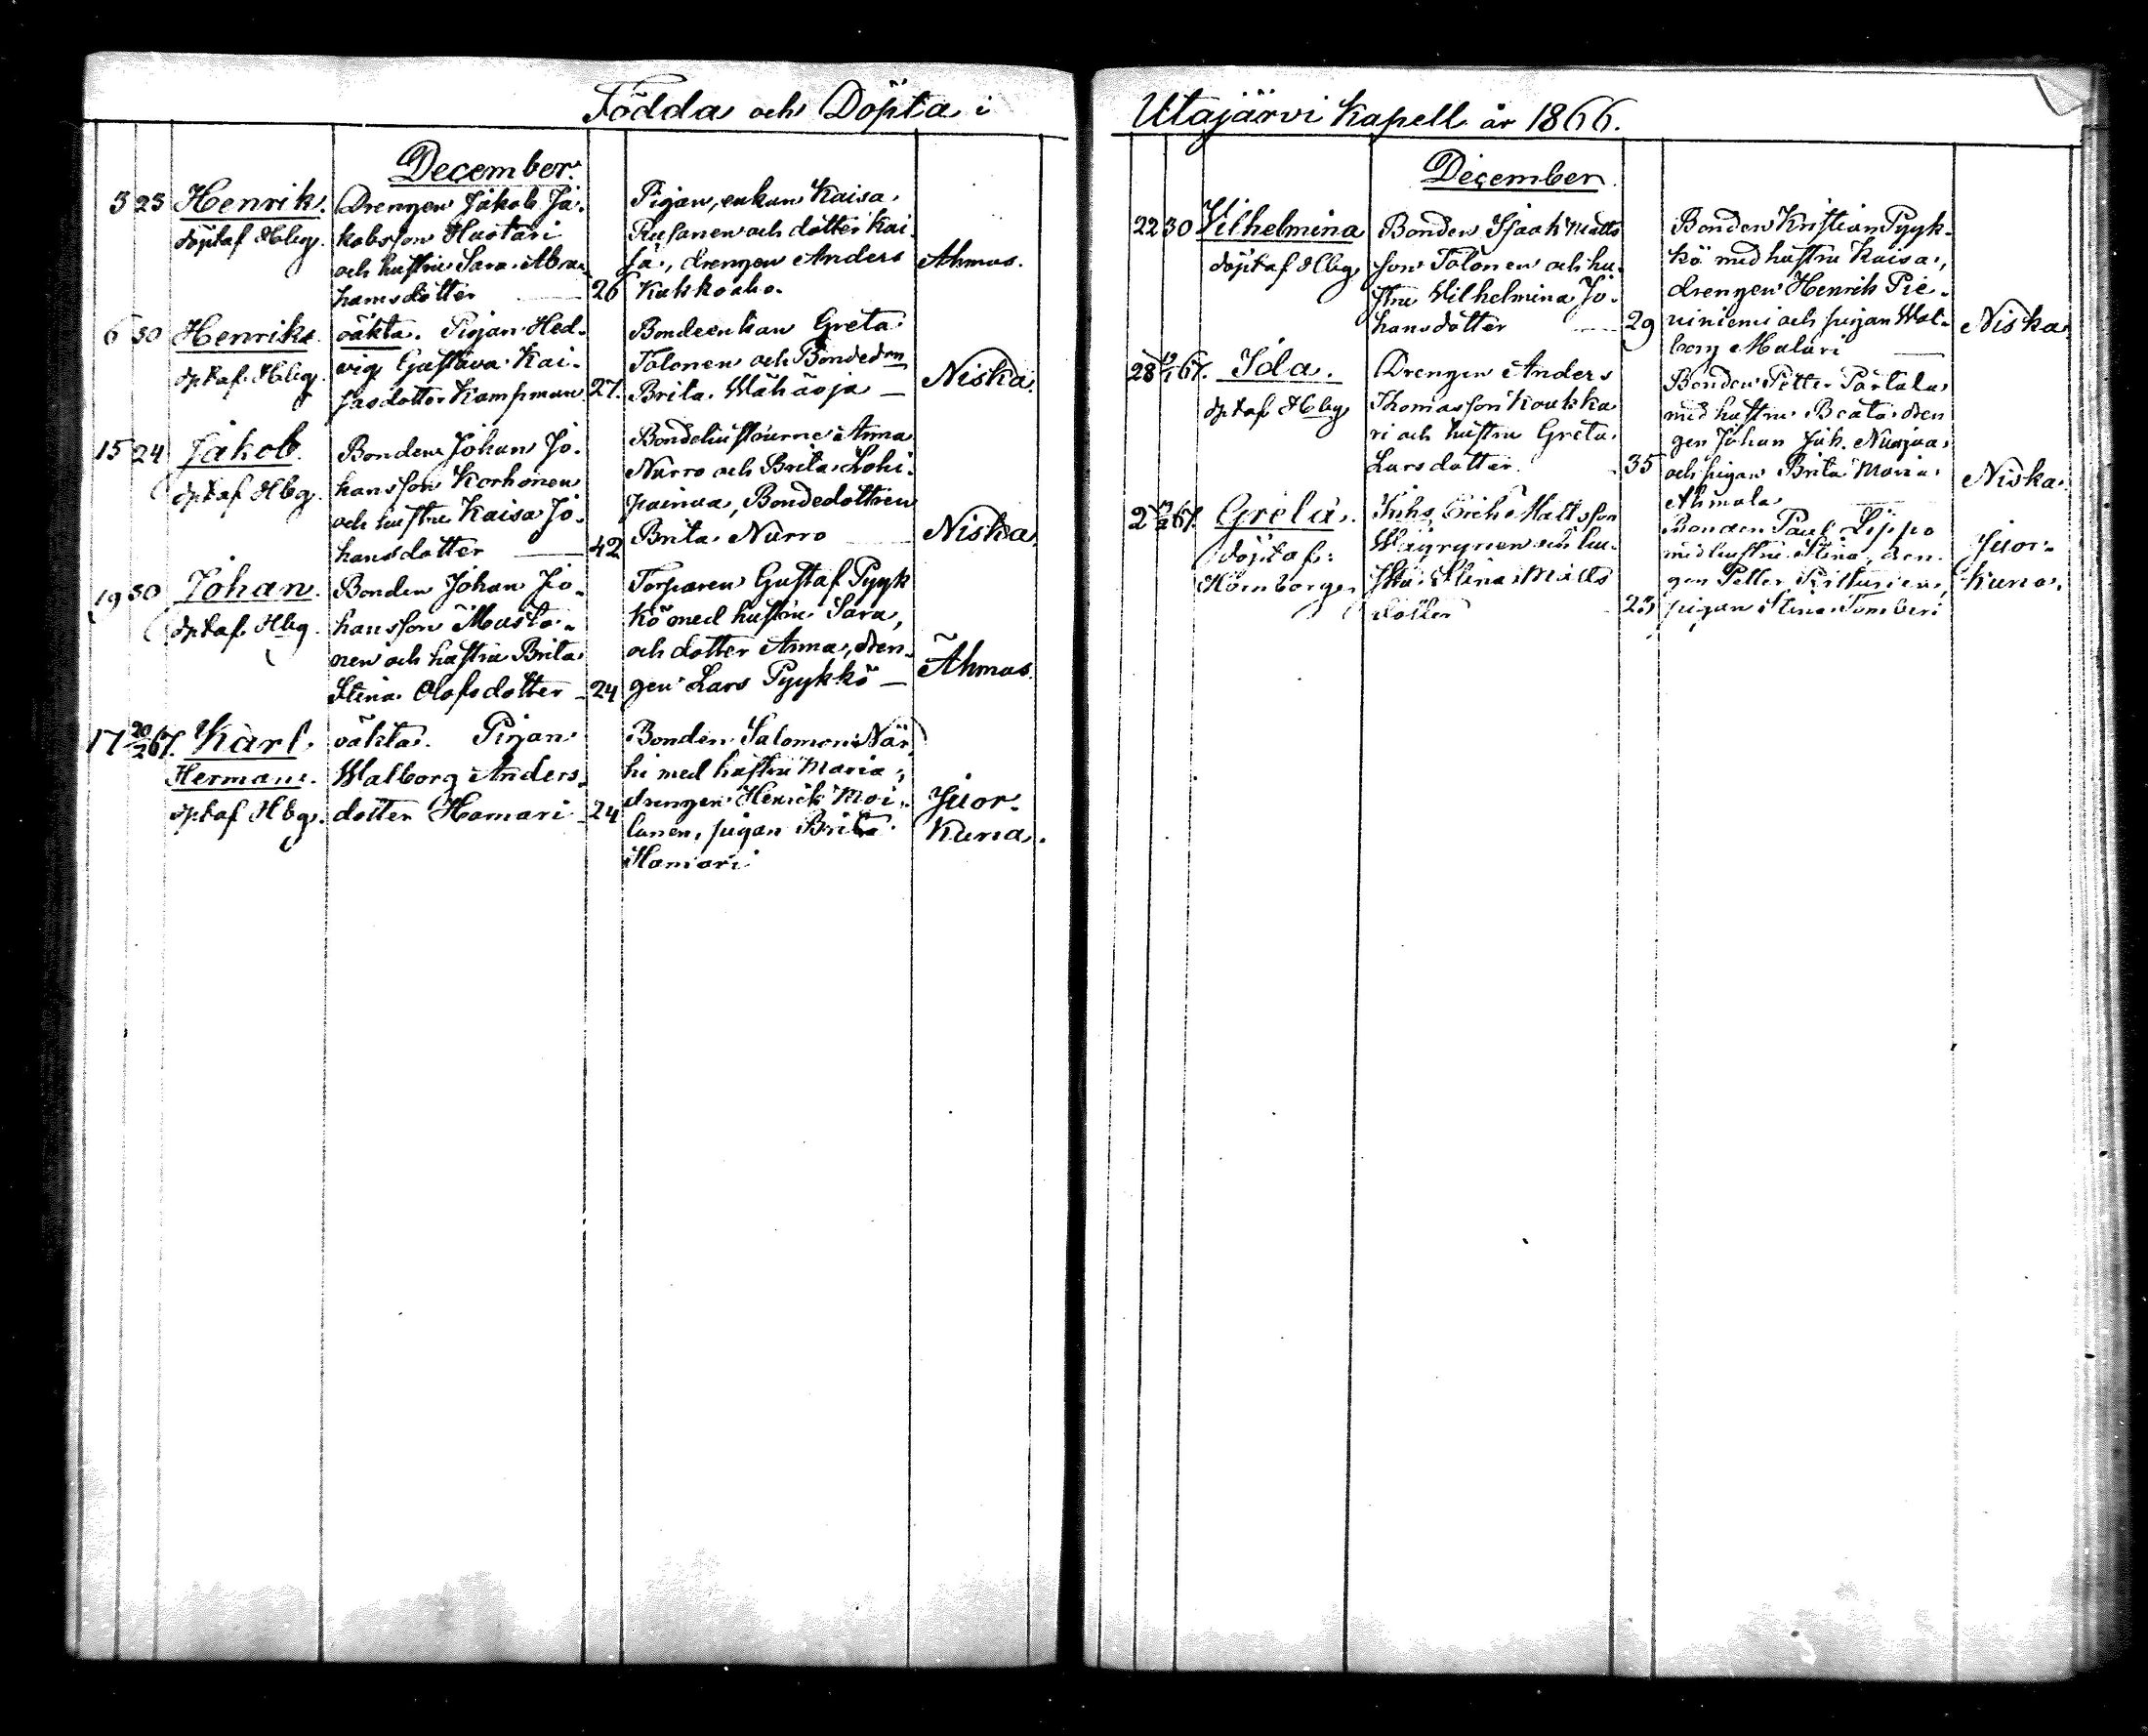 Födda och Döpta i
December.
5 23 Henrik.
döpt af Hbg.
Drengen Jakob Ja-
kobsson Huotari
och hustru Sara Abra-
hamsdotter 26
Pigan, enkan Kaisa
Rusanen och dotter Kai-
sa, drengen Anders
Kukkoaho.
Ahmas.
6 30 Henrik
dpt af Hbg.
oäkta. Pigan Hed-
vig Gustava Kai-
sasdotter Kampman 27.
Bondeenkan Greta
Tolonen och Bondedon
Brita Wähäoja
Niska.
15 24 Jakob.
dpt af Hbg.
Bonden Johan Jo-
hansson Korhonen
och hustru Kaisa Jo-
hansdotter 42
Bondehustrurne Anna
Nurro och Brita Lohi-
painua, Bondedottren
Brita Nurro
Niska.
19 30 Johan.
dpt af Hbg.
Bonden Johan Jo-
hansson Musto-
nen och hustru Brita
Stina Olofsdotter 24
Torparen Gustaf Pyyk
kö med hustru Sara,
och dotter Anna, dren-
gen Lars Pyykkö
Ahmas.
17 20/2 67. Karl
Herman.
dpt af Hbg.
oäkta. Pigan
Walborg Anders-
dotter Hamari 24
Bonden Salomon När
hi med hustru Maria,
drengen Henrik Moi-
lanen, pigan Brita
Hamari
Juor-
kuna.
Utajärvi Kapell år 1866.
December.
22 30 Vilhelmina
döpt af Hbg
Bonden Isaak Matts
son Tolonen och hu-
stru Vilhelmina Jo-
hansdotter 29
Bonden Kristian Pyyk-
kö med hustru Kaisa,
drengen Henrik Pie-
niniemi och pigan Wal-
borg Mulari
Niska.
28 67. Ida.
dpt af Hbg
Drengen Anders
Thomasson Koukka
ri och hustru Greta
Larsdotter 35
Bonden Petter Partala
med hustru Beata dren
gen Johan Joh. Nuojua
och pigan Brita Maria
Ahmala
Niska.
67. Greta.
döpt af:
Hornborg
Inhs. Erik Mattsson
Wäyrynen och hu-
stru Stina Matts
dotter
Bonden Paul Lippo
med hustru Stina, dren
gen Petter
pigan Stina Tomberi
Juor-
kuna.